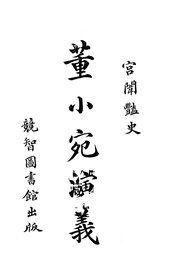 宮闈豔史
董小宛演義
競智圖書館出版